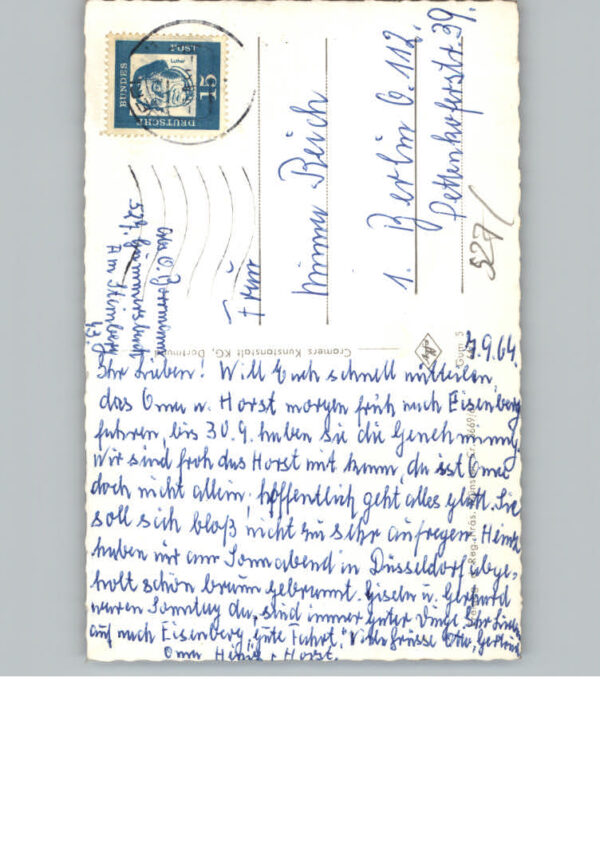 DEUTSCHE
BUNDES
POST
15
Luther
Frau
Minna Reich
1. Berlin O. 112.
Pettenkoferstr. 39.
527/
Abs. O.
527. Gummersbach
Am Steinberg
Cramers Kunstanstalt KG, Dortmund
7.9.64.
Ihr Lieben! Will Euch schnell mitteilen,
das Oma u. Horst morgen früh nach Eisenberg
fahren, bis 30.9. haben sie die Genehmigung.
Wir sind froh das Horst mit kann, da ist Oma
doch nicht allein, hoffentlich geht alles glatt. Sie
soll sich bloß nicht zu sehr aufregen. Heinz
haben wir am Sonnabend in Düsseldorf abge-
holt schön braun gebrannt. Gisela u. Gerhard
waren Sonntag da, sind immer guter Dinge. Ihr Lieben
auf nach Eisenberg, "gute Fahrt". Viele Grüsse Otto, Gertrud
Oma Heinz + Horst.